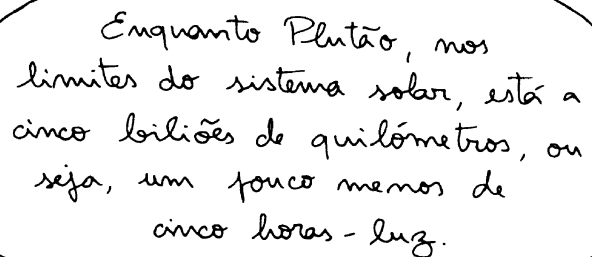 Enquanto Plutão, nos
limites do sistema solar, está a
cinco biliões de quilómetros, ou
seja, um pouco menos de
cinco horas-luz.